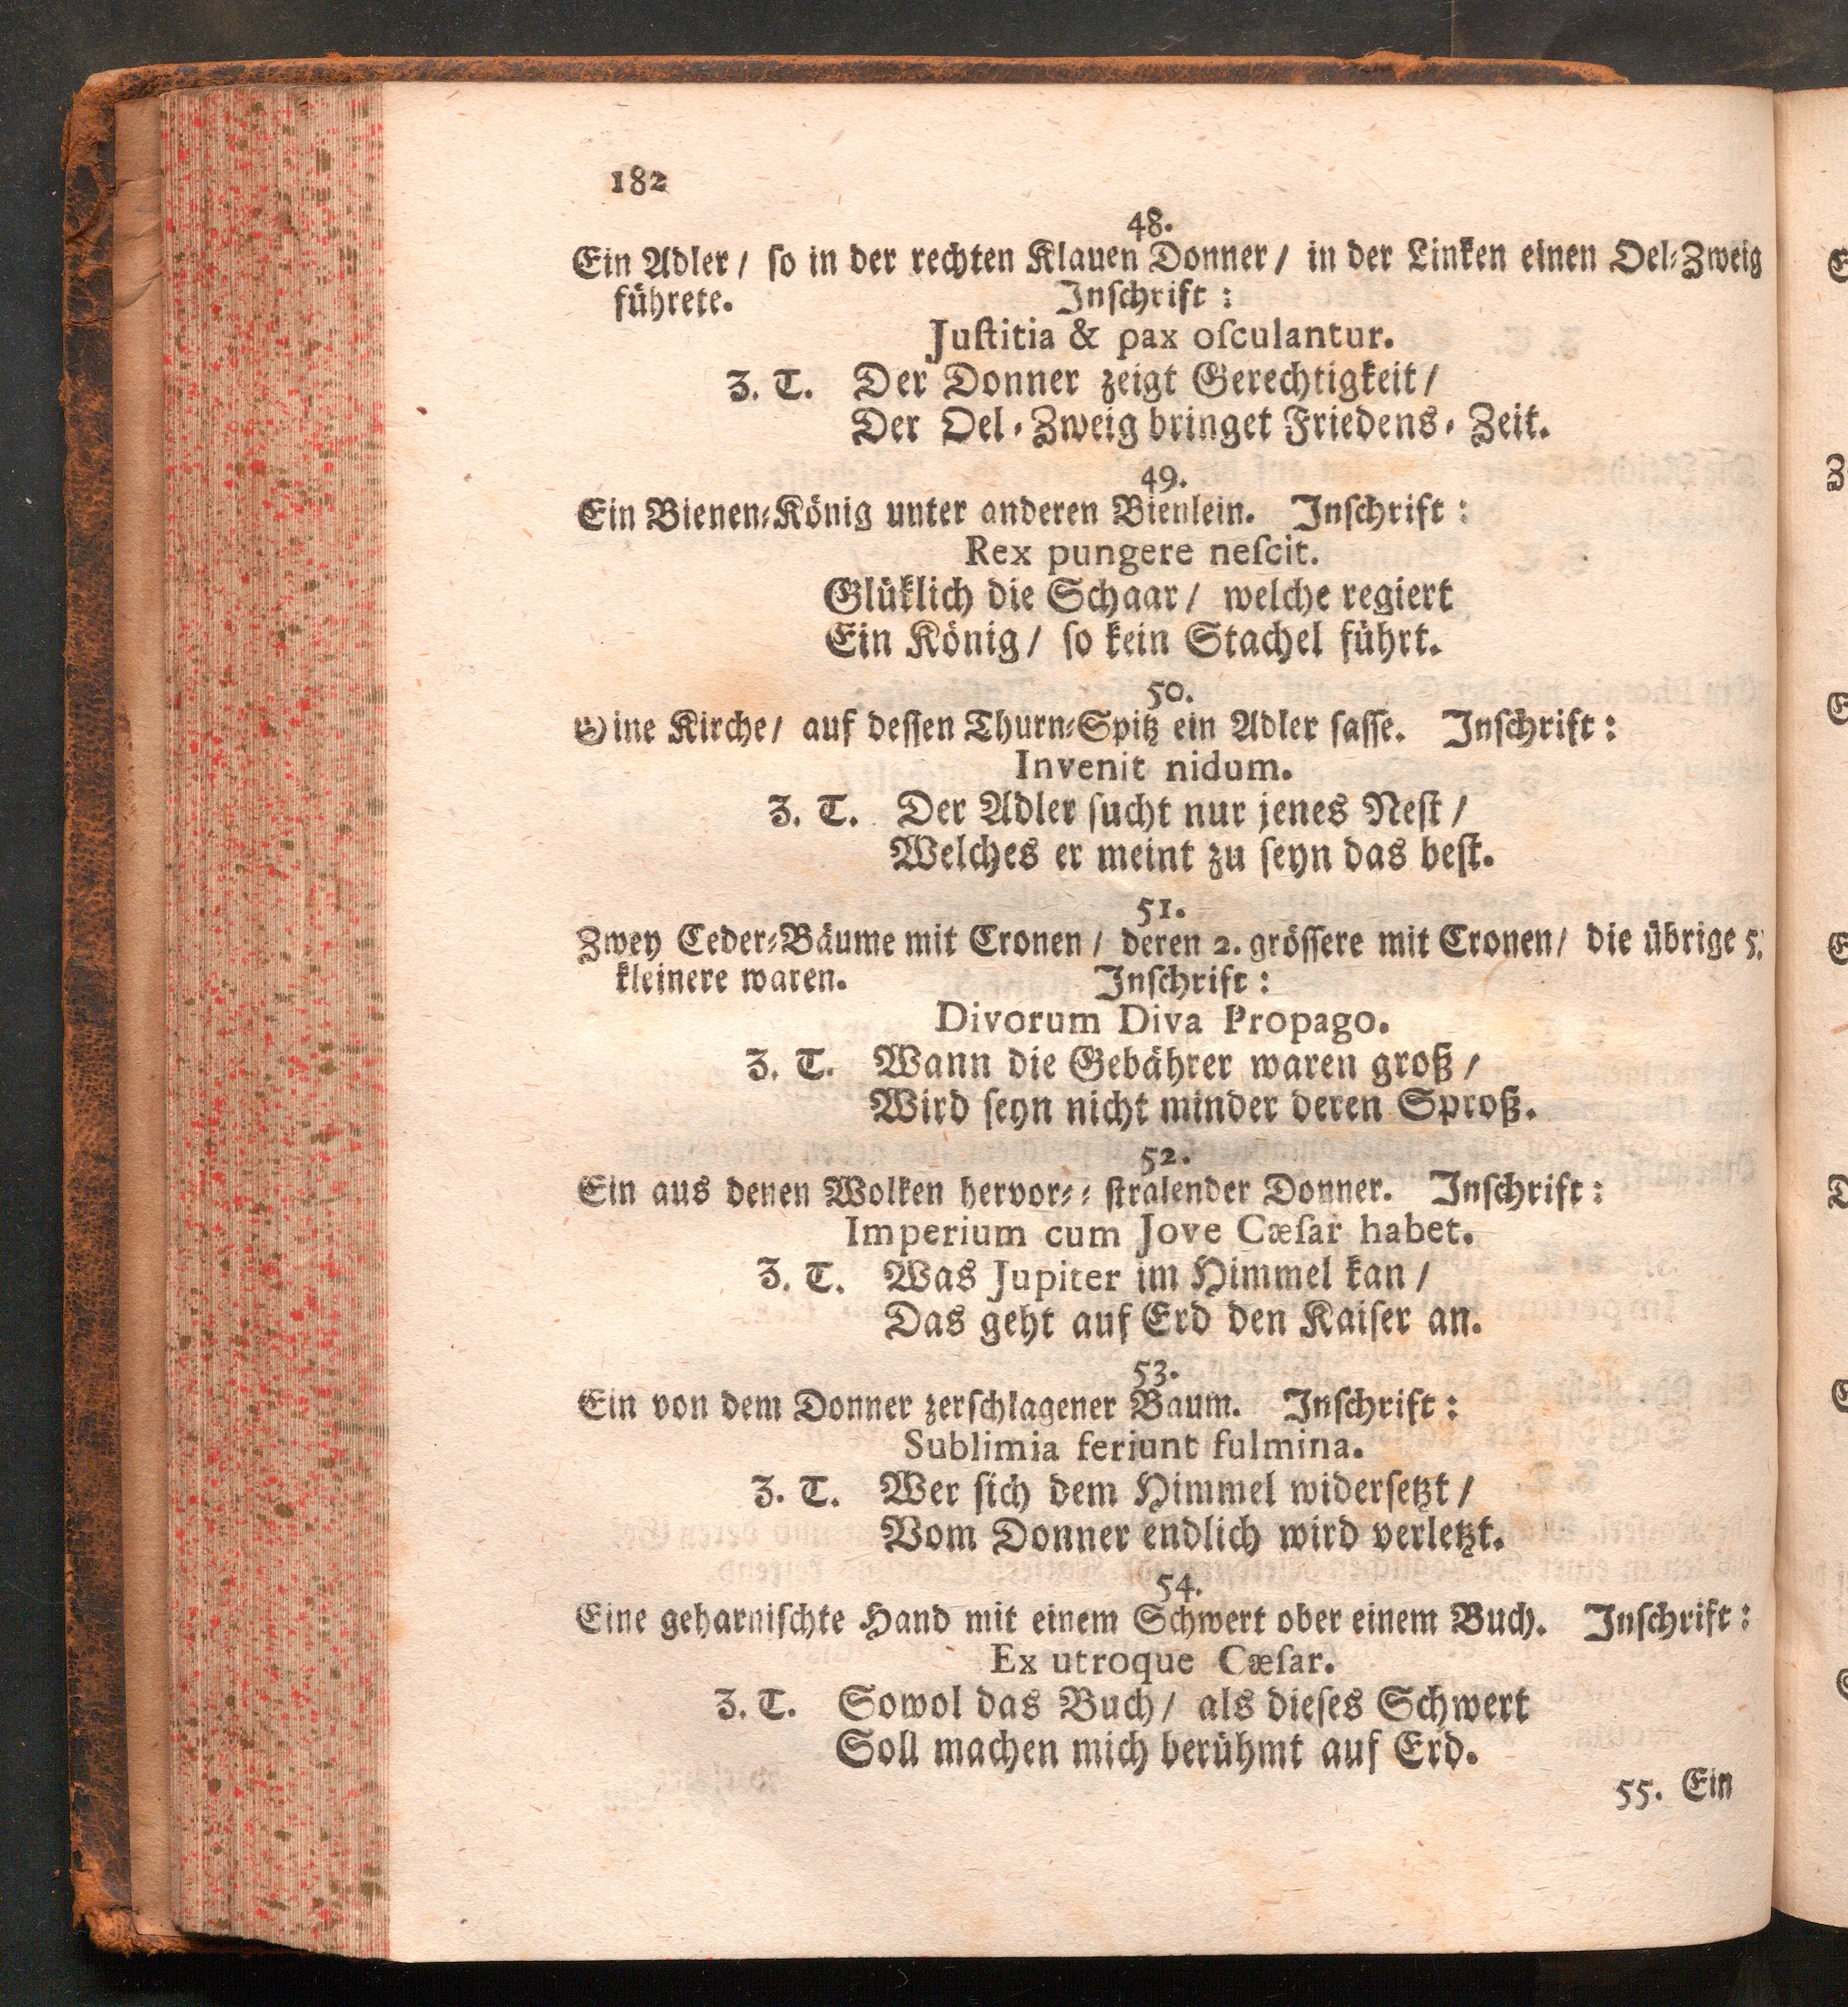 182
48.
Ein Adler / ſo in der rechten Klauen Donner / in der Linken einen Oel-Zweig
führete. Inſchrift :
Juſtitia & pax oſculantur.
Z. T. Der Donner zeigt Gerechtigkeit /
Der Oel-Zweig bringet Friedens-Zeit.
49.
Ein Bienen-König unter anderen Bienlein. Inſchrift :
Rex pungere neſcit.
Glüklich die Schaar / welche regiert
Ein König / ſo kein Stachel führt.
50.
Eine Kirche / auf deſſen Thurn-Spitz ein Adler ſaſſe. Inſchrift :
Invenit nidum.
Z. T. Der Adler ſucht nur jenes Neſt /
Welches er meint zu ſeyn das beſt.
51.
Zwey Ceder-Bäume mit Cronen / deren 2. gröſſere mit Cronen / die übrige 5.
kleinere waren. Inſchrift :
Divorum Diva Propago.
Z. T. Wann die Gebährer waren groß /
Wird ſeyn nicht minder deren Sproß.
52.
Ein aus denen Wolken hervor-- ſtralender Donner. Inſchrift :
Imperium cum Jove Cæſar habet.
Z. T. Was Jupiter im Himmel kan /
Das geht auf Erd den Kaiſer an.
53.
Ein von dem Donner zerſchlagener Baum. Inſchrift :
Sublimia feriunt fulmina.
Z. T. Wer ſich dem Himmel widerſetzt /
Vom Donner endlich wird verletzt.
54.
Eine geharniſchte Hand mit einem Schwert ober einem Buch. Inſchrift :
Ex utroque Cæſar.
Z. T. Sowol das Buch / als dieſes Schwert
Soll machen mich berühmt auf Erd.
55. Ein